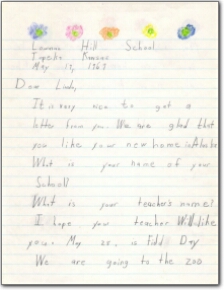 Hill School
Topeka Kansas
May 19, 1967
Dear Linda,
It is very nice to get a
letter from you. We are glad that
you like your new home in Alaska
What is your name of your
School?
What is your teacher's name?
I hope your teacher Will like
you. May 25, is Field Day
We are going to the zoo